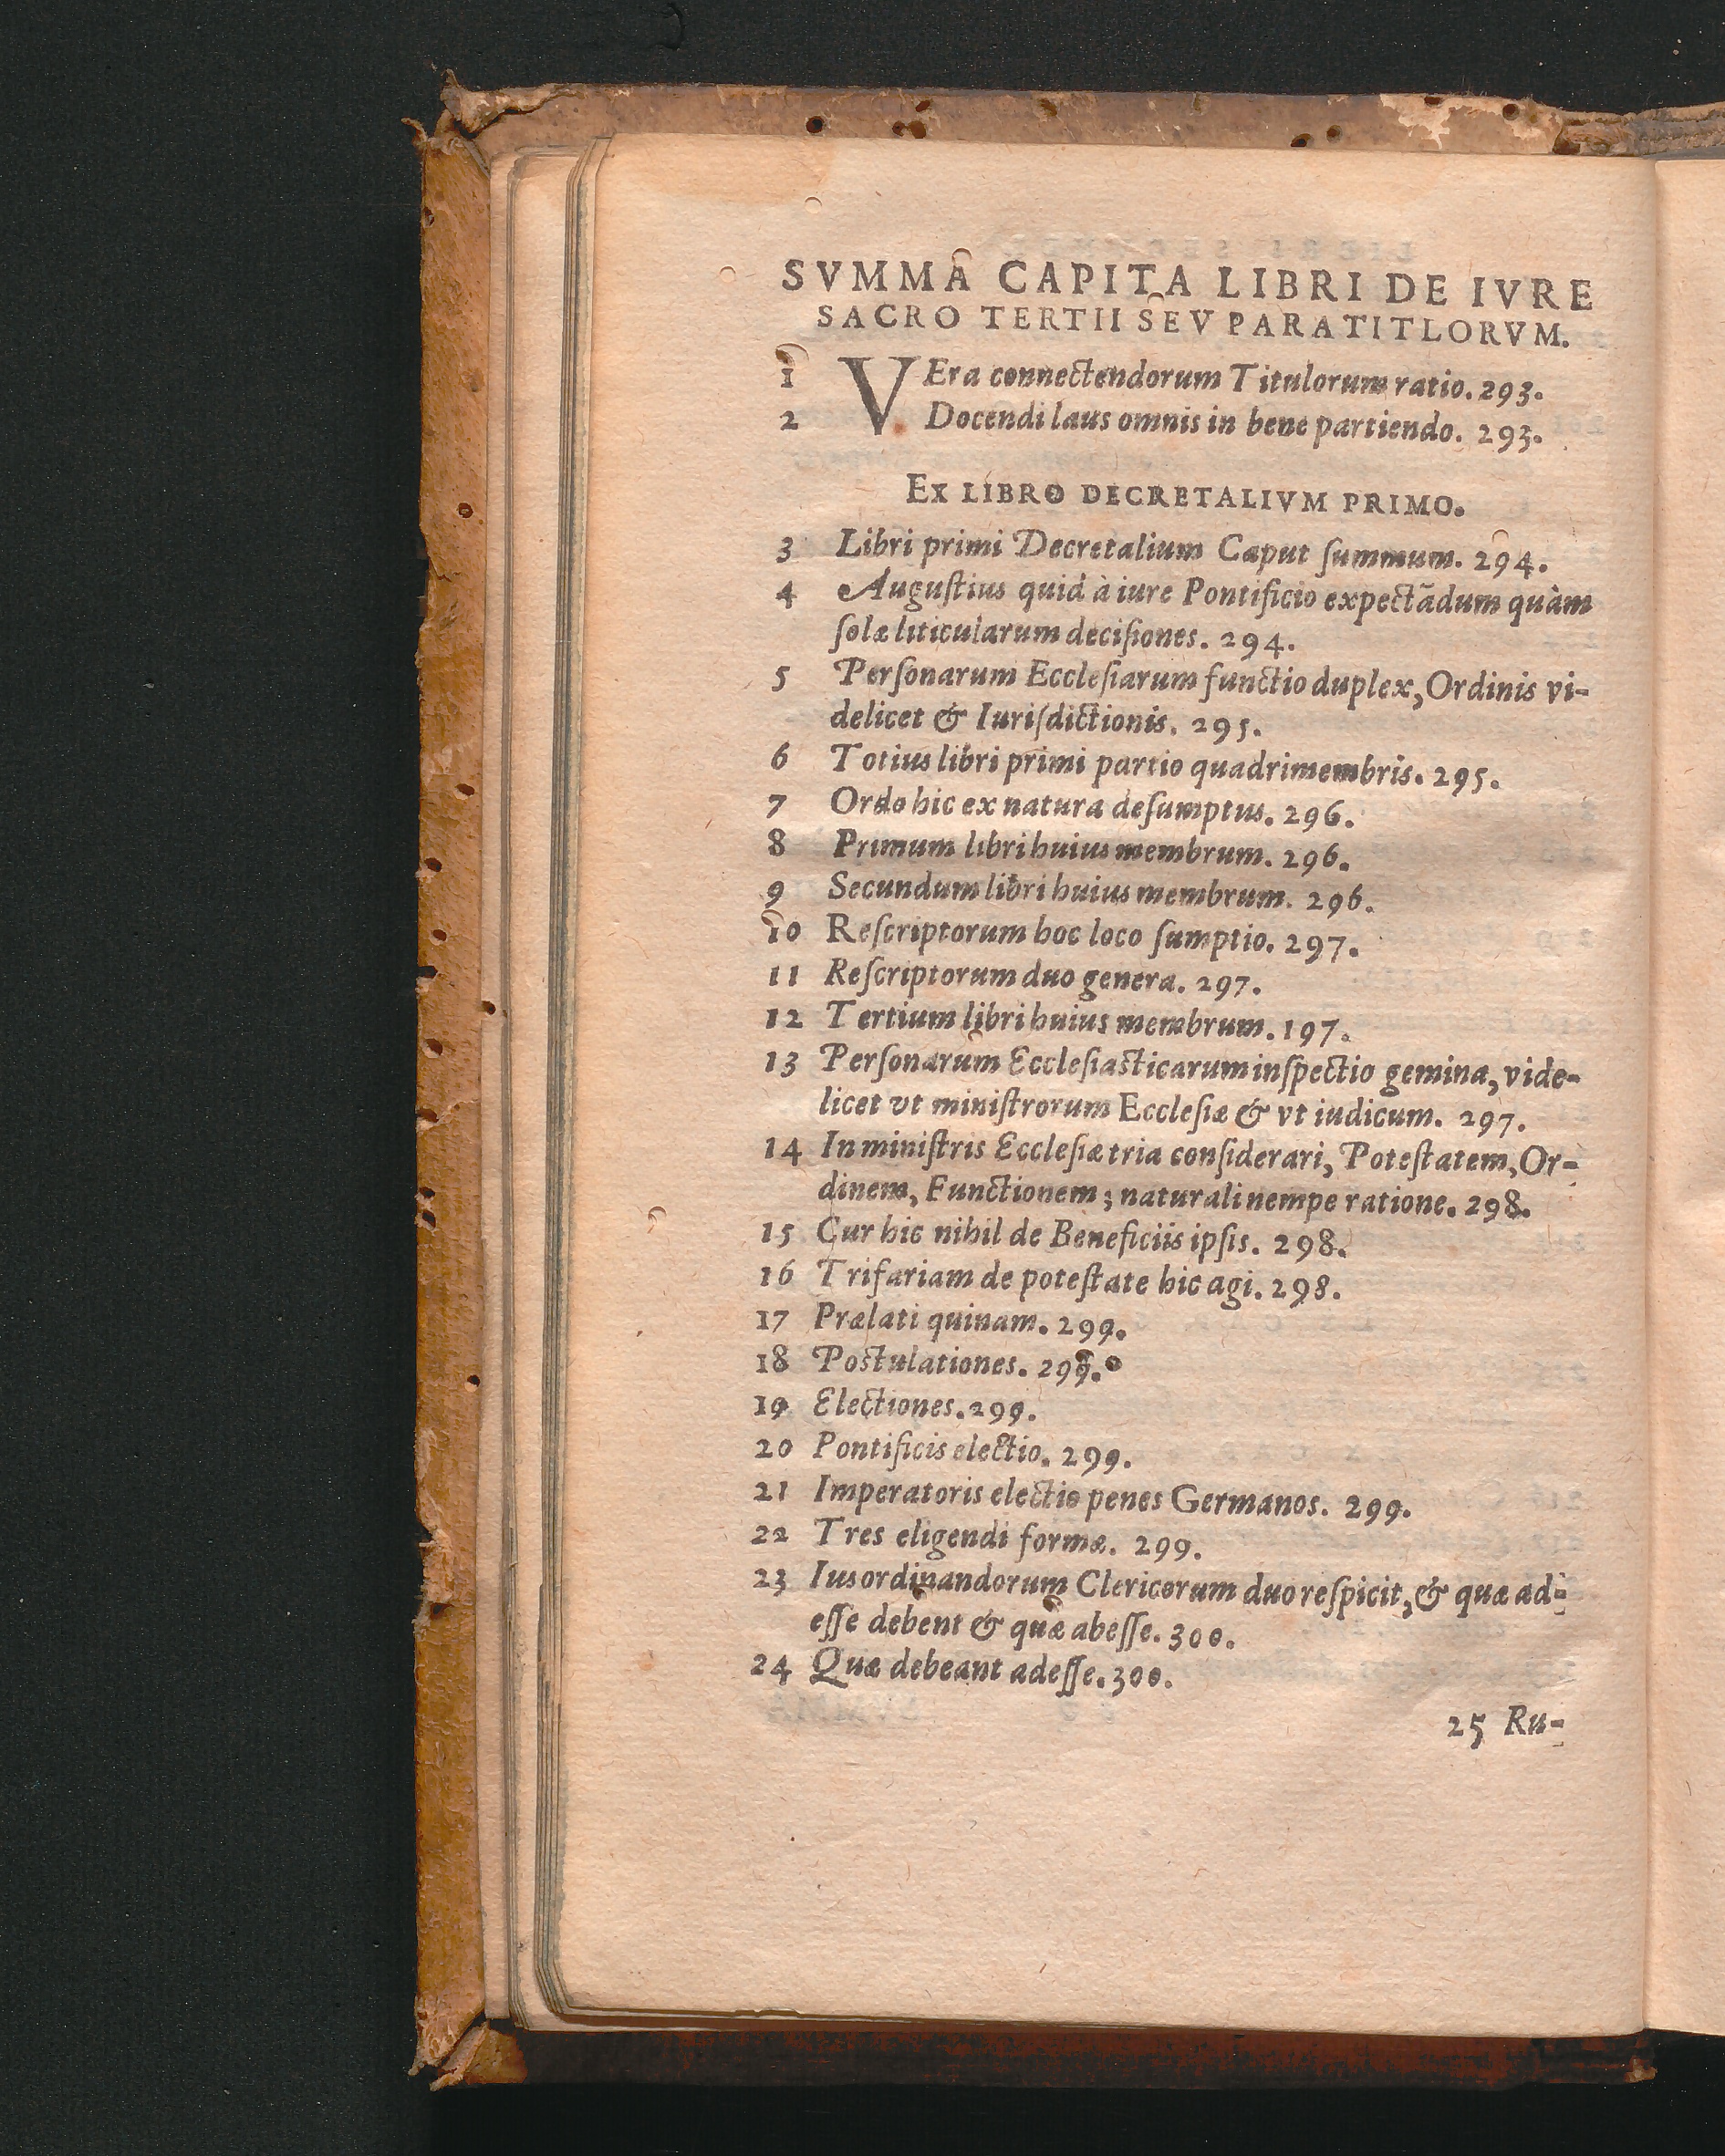 SVMMA CAPITA LIBRI DE IVRE
SACRO TERTII SEV PARATITLORVM.
1 VEra connectendorum Titulorum ratio. 293.
2 Docendi laus omnis in bene partiendo. 293.
EX LIBRO DECRETALIVM PRIMO.
3 Libri primi Decretalium Caput ſummum. 294.
4 Auguſtius quid à iure Pontificio expectãdum quàm
ſolæ liticularum deciſiones. 294.
5 Perſonarum Eccleſiarum functio duplex, Ordinis vi-
delicet & Iuriſdictionis. 295.
6 Totius libri primi partio quadrimembris. 295.
7 Ordo hic ex natura deſumptus. 296.
8 Primum libri huius membrum. 296.
9 Secundum libri huius membrum. 296.
10 Reſcriptorum hoc loco ſumptio. 297.
11 Reſcriptorum duo genera. 297.
12 Tertium libri huius membrum. 197.
13 Perſonarum Eccleſiasticarum inſpectio gemina, vide-
licet vt miniſtrorum Eccleſiæ & vt iudicum. 297.
14 In miniſtris Eccleſiæ tria conſiderari, Poteſtatem, Or-
dinem, Functionem; naturali nempe ratione. 298.
15 Cur hic nihil de Beneficiis ipſis. 298.
16 Trifariam de poteſtate hic agi. 298.
17 Prælati quinam. 299.
18 Postulationes. 299.
19 Electiones. 299.
20 Pontificis electio. 299.
21 Imperatoris electio penes Germanos. 299.
22 Tres eligendi formæ. 299.
23 Ius ordinandorum Clericorum duo reſpicit, & quæ ad-
eſſe debent & quæ abeſſe. 300.
24 Quæ debeant adeſſe. 300.
25 Ru-